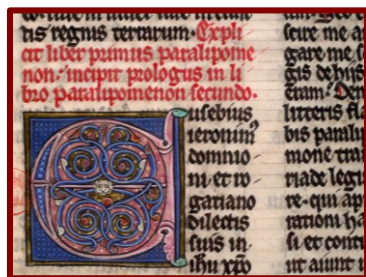 tis regnis terrarum. Expli
cit liber primus paralipome
non. incipit prologus in li
bro paralipomenon secundo.
Eusebius
ieronimꝰ
domnio
ni et ro
gatiano
dilectis
suis in
ihu xpo
scire me
gare me
gis de hijs
etiam. Den
litteris
bis
mone
legu
re. qui ap
rationi
si et conti
ut aiunt